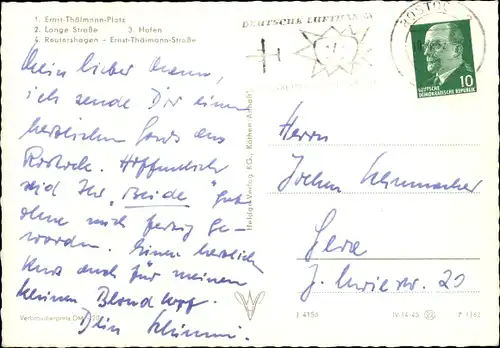 1. Ernst-Thälmann-Platz
2. Lange Straße 3. Hafen
4. Reutershagen - Ernst-Thälmann-Straße
Mein lieber Mann,
ich sende Dir einen
herzlichen Gruß aus
Rostock. Hoffentlich
seid Ihr „Beide" gut
ohne mich fertig ge-
worden. Einen herzlichen
Kuss auch für meinen
kleinen Blondkopf.
Dein
Verbraucherpreis DM
Heldge-Verlag KG., Köthen-Anhalt
DEUTSCHE LUFTHANSA
ROSTOCK
10
DEUTSCHE
DEMOKRATISCHE REPUBLIK
Herrn
Jochen
Gera
20
J 4156 IV-14-45 P 1/62